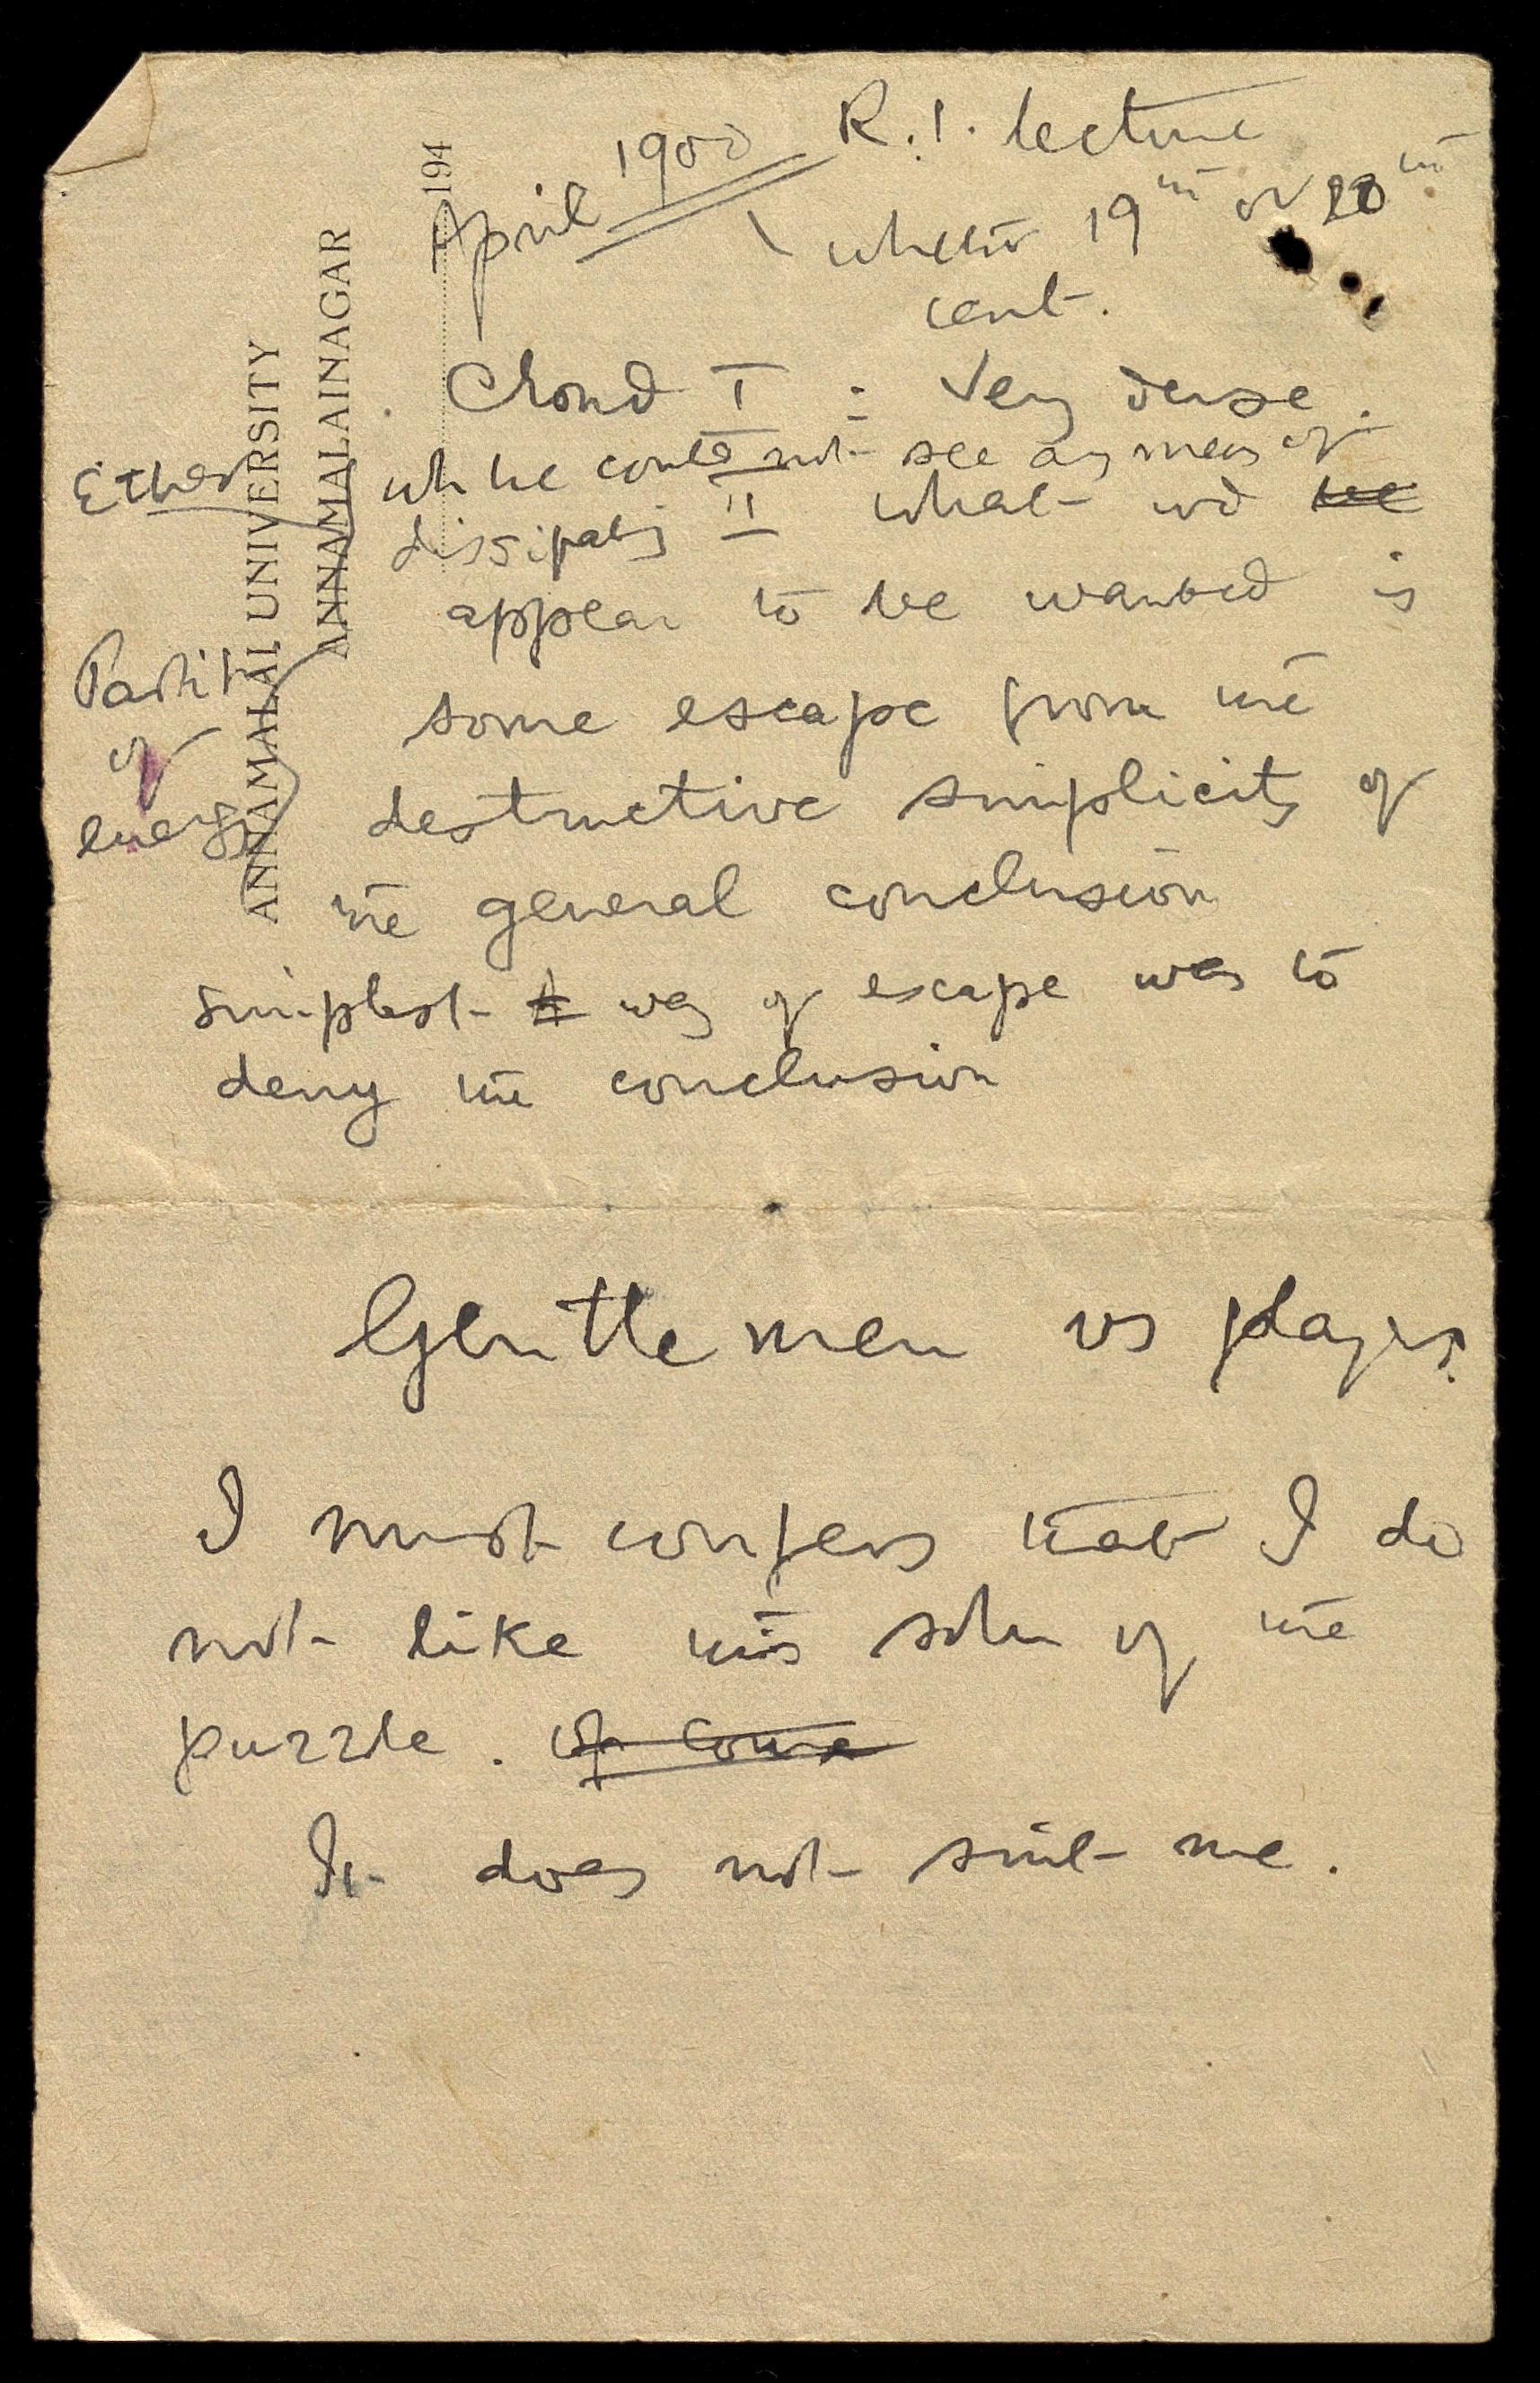 ANNAMALAI UNIVERSITY
ANNAMALAINAGAR
194
April 1900 R.I. lecture
whether 19th or 20th
cent.
Cloud I : Very dense.
Ether
wh he could not see any means of
dissipating II what wd be
appear to be wanted is
Partit
of
energy
some escape from the
destructive simplicity of
the general conclusion
simplest way of escape was to
deny the conclusion
Gentlemen vs players.
I must confess that I do
not like this soln of the
puzzle. of course
It does not suit me.